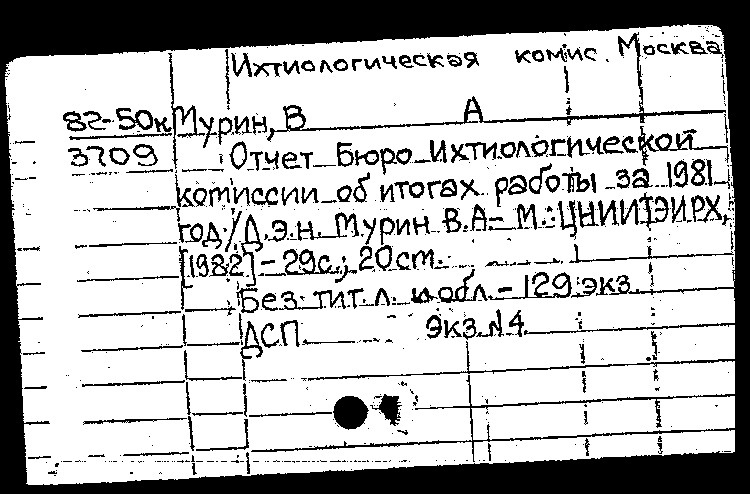 Ихтиологическая комис. Москва
82-50к Мурин, В А
3709 Отчет Бюро Ихтиологической
комиссии об итогах работы за 1981
год / Д.э.н. Мурин В.А.- М.: ЦНИИТЭИРХ,
[1982] - 29с.; 20ст.
Без тит. л. и обл. - 129 экз.
ДСП. Экз. №4